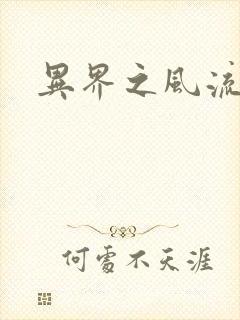 異界之風流
何處不天涯